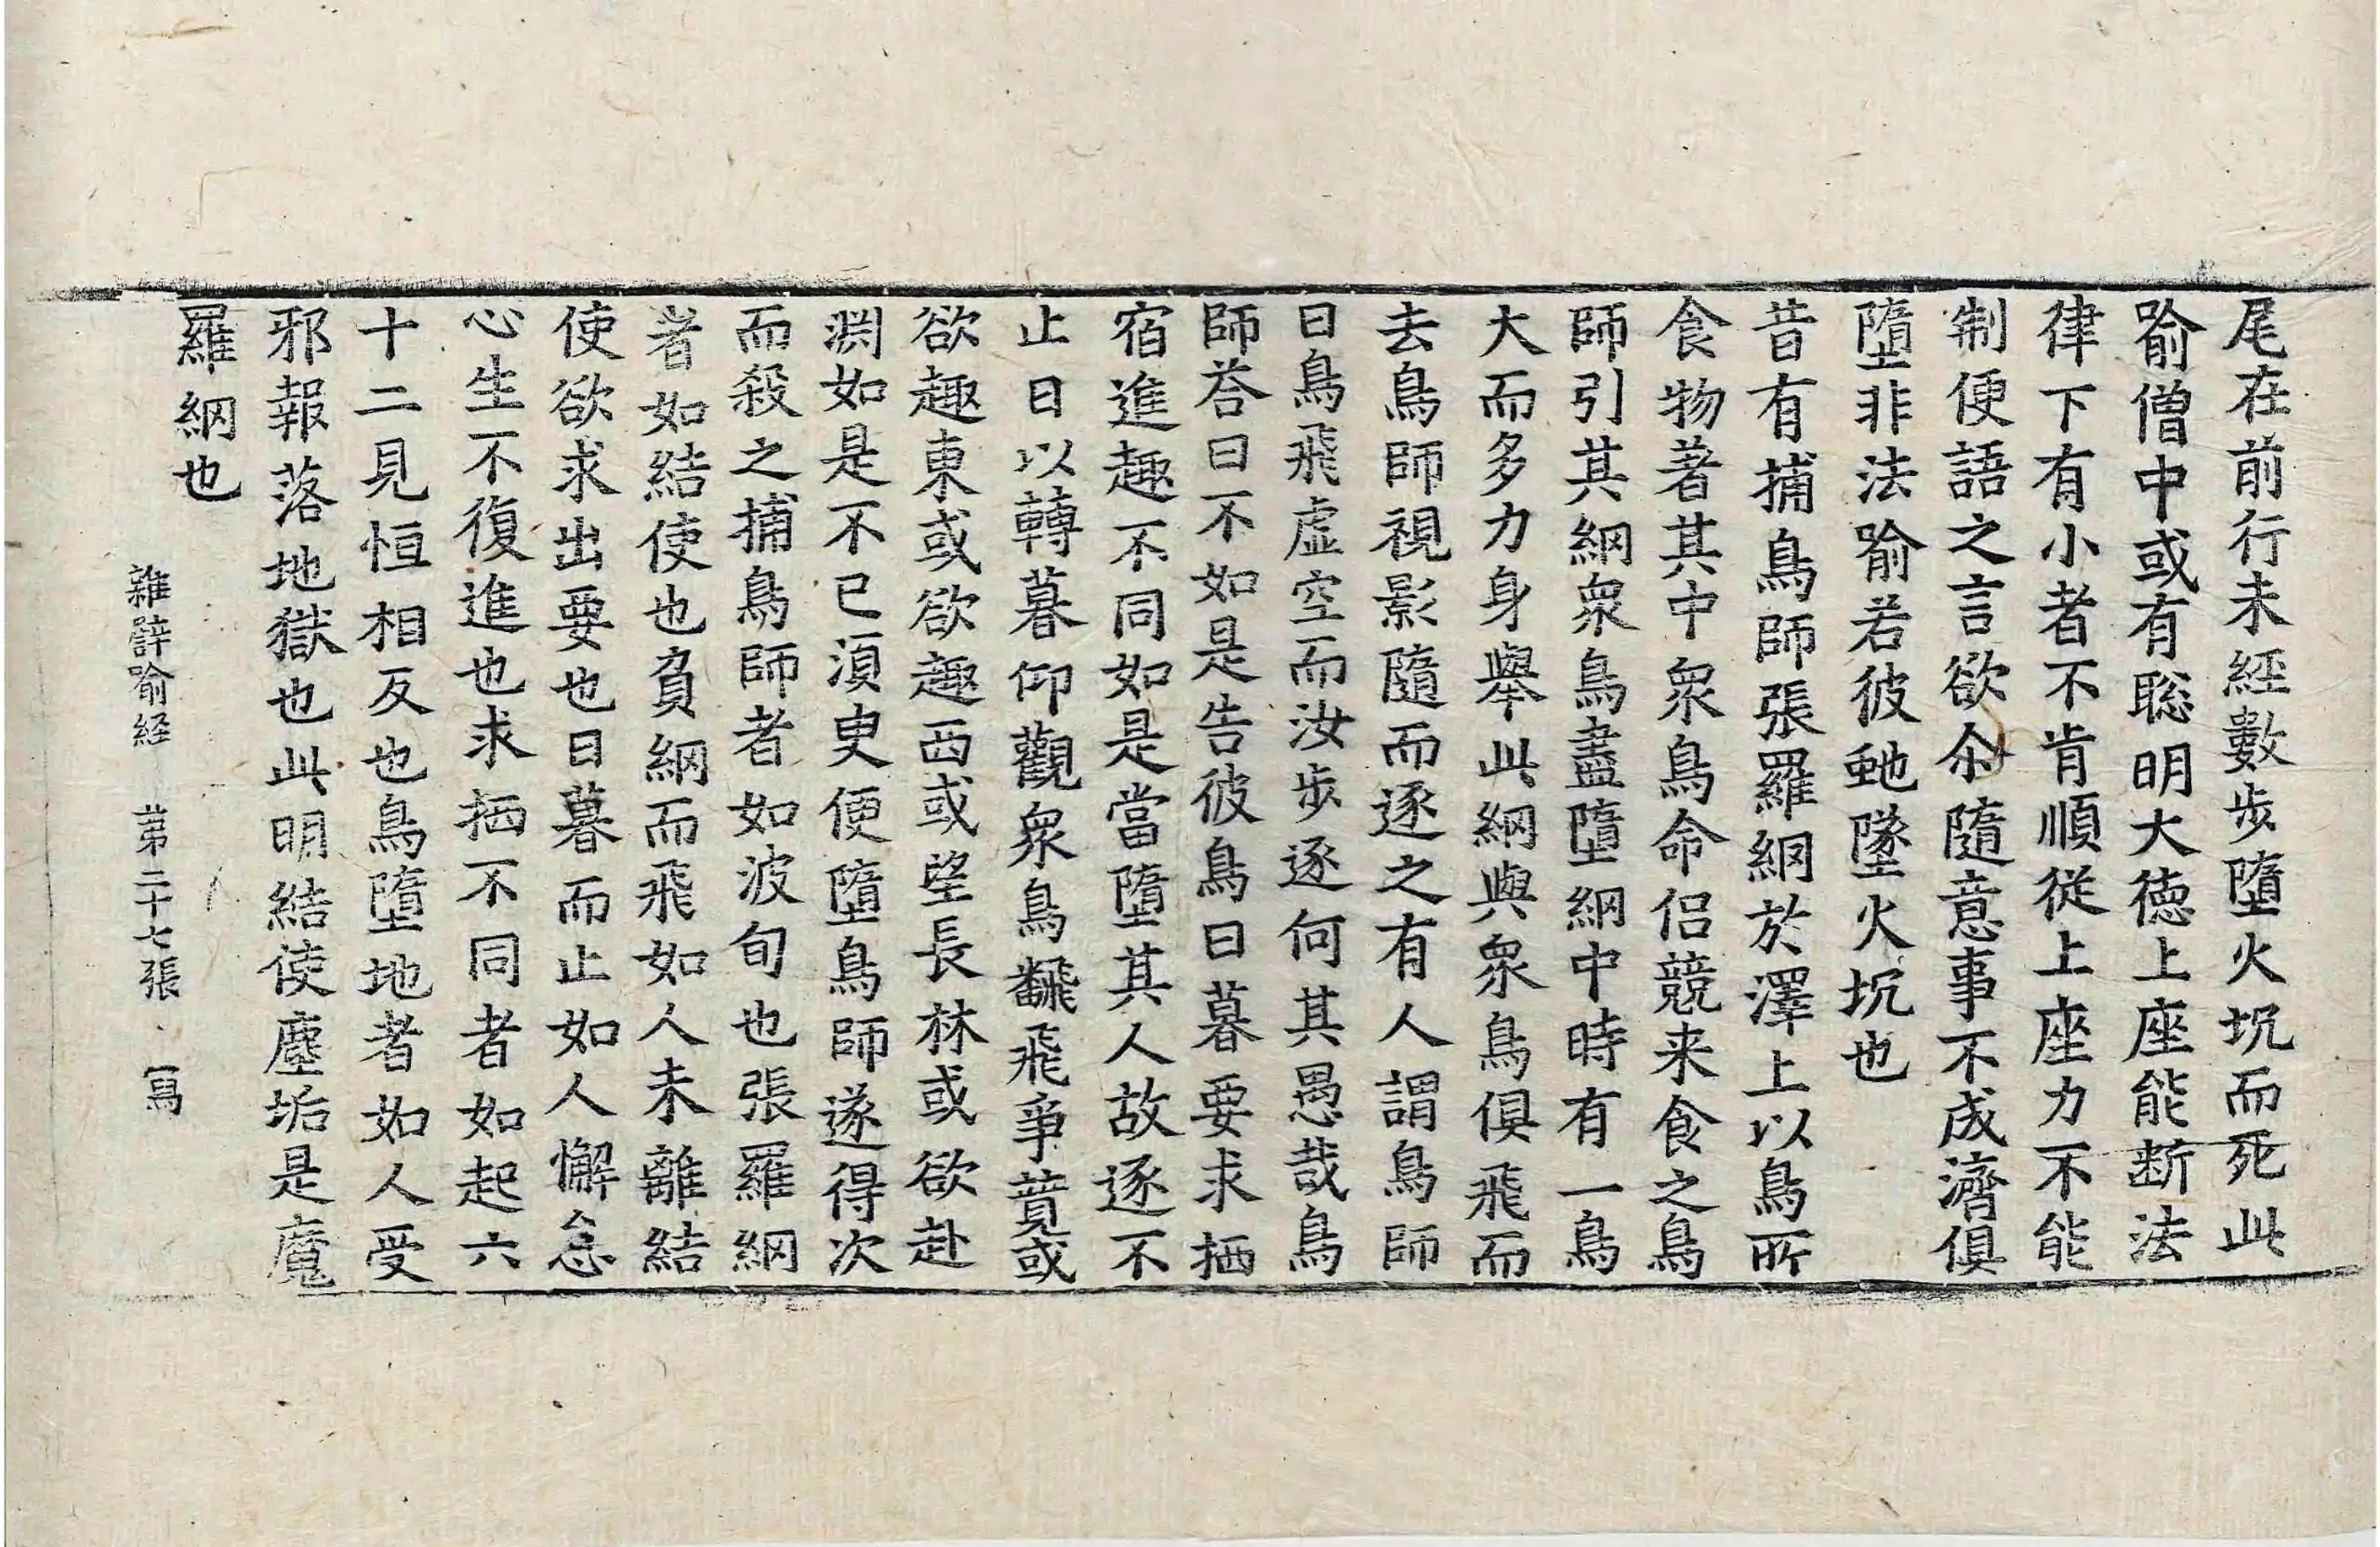 尾在前行未經數步墮火坑而死此
喻僧中或有聡明大徳上座能断法
律下有小者不肯順從上座力不能
制便語之言欲尒隨意事不成濟俱
墮非法喻若彼虵墜火坑也
昔有捕鳥師張羅網於澤上以鳥所
食物著其中衆鳥命侣競来食之鳥
師引其網衆鳥盡墮網中時有一鳥
大而多力身舉此網與衆鳥俱飛而
去鳥師視影隨而逐之有人謂鳥師
曰鳥飛虚空而汝步逐何其愚哉鳥
師荅曰不如是告彼鳥日暮要求栖
宿進趣不同如是當墮其人故逐不
止日以轉暮仰觀衆鳥飜飛爭蕒或
欲趣東或欲趣西或望長林或欲赴
渕如是不已湏㬰便墮鳥師遂得次
而殺之捕鳥師者如波旬也張羅網
者如結使也負網而飛如人未離結
使欲求出要也日暮而止如人懈怠
心生不復進也求栖不同者如起六
十二見恒相反也鳥墮地者如人受
邪報落地獄也此明結使塵垢是魔
羅網也
雜辟喻經 苐二十七張 寫